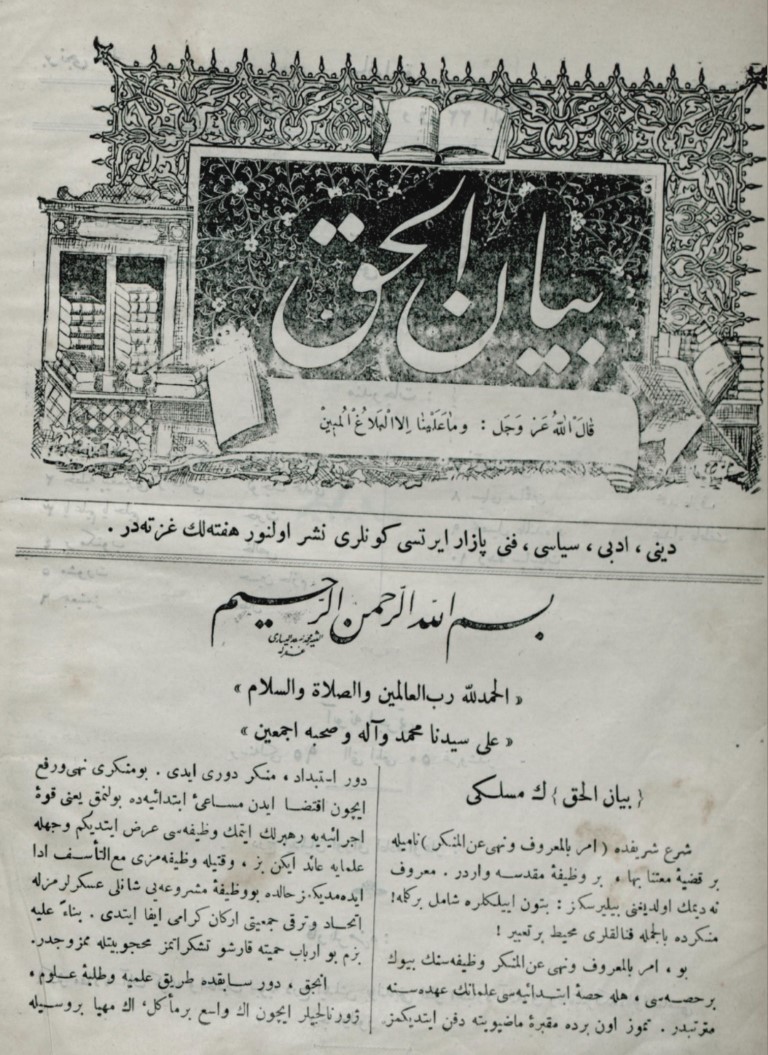 بيان الحق
قَالَ اللهُ عَزَّ وَجَل : وَمَا عَلَيْنَا اِلَّا الْبَلَاغُ الْمُبِينْ
دينى ، ادبى ، سياسى ، فنى پازار ايرتسى كونلرى نشر اولنور هفته‌لك غزته‌در .
بسم الله الرحمن الرحيم
« الحمدلله رب العالمين والصلاة والسلام »
« على سيدنا محمد وآله و صحبه اجمعين »
{ بيان الحق } ك مسلكى
شرع شريفده ( امر بالمعروف ونهى عن المنكر ) ناميله
بر قضيۀ معتنا بها ، بر وظيفۀ مقدسه واردر . معروف
نه ديمك اولديغنى بيليرسكز : بتون اييلكلره شامل بر كله !
منكرده بالجمله فنالقلرى محيط بر تعبير !
بو ، امر بالمعروف ونهى عن المنكر وظيفه‌سنك بيوك
بر حصه‌سى ، هله حصۀ ابتدائيه‌سى علمانك عهده‌سنه
مترتبدر . تموز اون برده مقبرۀ ماضيويته دفن ايتديكمز
دور استبداد ، منكر دورى ايدى . بو منكرى نهى ورفع
ايچون اقتضا ايدن مساعئ ابتدائيه‌ده بولنمق يعنى قوۀ
اجرائيه‌يه رهبرلك ايتمك وظيفه‌سى عرض ايتديكم وجهله
علمايه عائد ايكن بز ، وقتيله وظيفه‌مزى مع التأسف ادا
ايده‌مديكمز حالده بو وظيفۀ مشروعه‌يى شانلى عسكرلرمزله
اتحاد وترقى جمعيتى اركان كرامى ايفا ايتدى . بناءً عليه
بزم بو ارباب حميته قارشو تشكراتمز محجوبيتله ممزوجدر.
انجق ، دور سابقده طريق علميه وطلبۀ علوم ،
ژورنالجيلر ايچون اك واسع بر مأكل ، اك مهيا بر وسيله